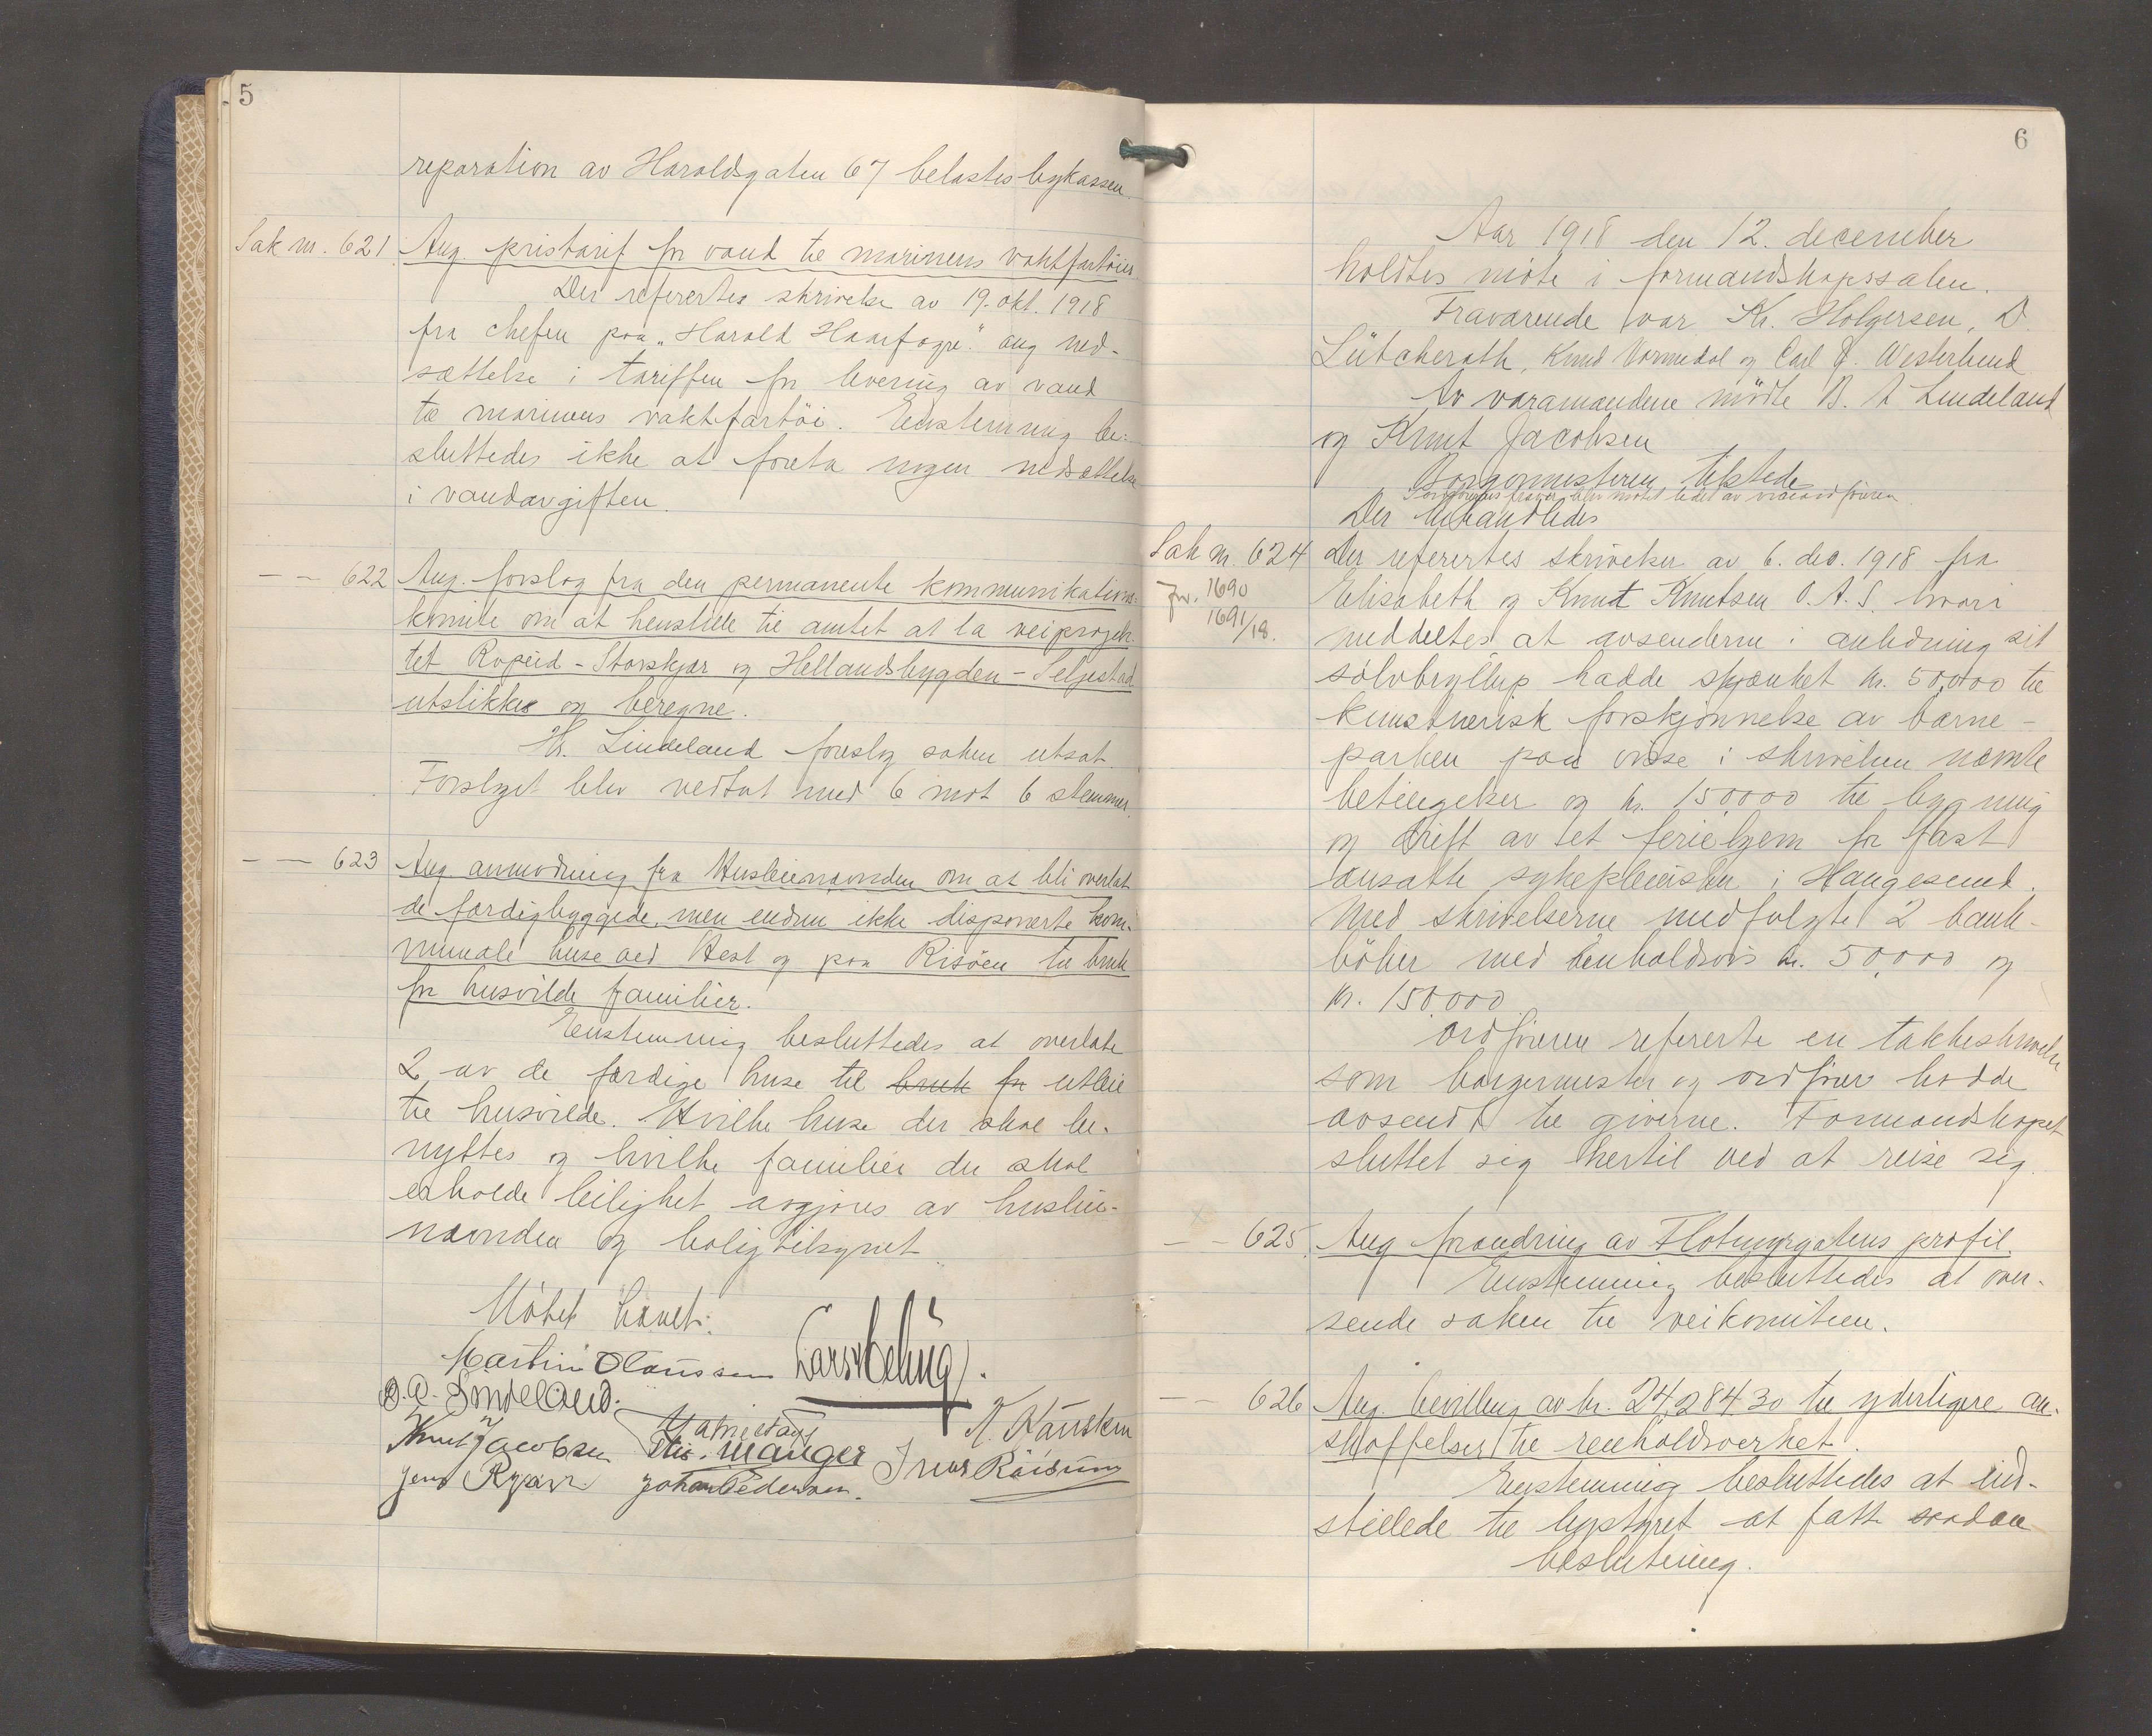 5
reparation av Haraldsgaten 67 belastes bykassen.
Sak nr. 621. Ang. pristarif for vand til marinens vaktfartöier
Der refertes skrivelse av 19. okt. 1918
fra chefen paa „Harald Haarfagre" ang ned-
sættelse i tariffen for levering av vand
til marinens vaktfartöi. Enstemmig be-
sluttedes ikke at foreta nogen nedsættelse
i vandavgiften.
— — 622 Ang. forslag fra den permanente kommunikations-
komite om at henstille til amtet at la veiprojek-
tet Ropeid - Storskjær og Hellandsbygden - Seljestad
utstikke og beregne.
Hr. Lindeland foreslog saken utsat.
Forslaget blev vedtat med 6 mot 6 stemmer.
— — 623 Ang anmodning fra Husleienævnden om at bli overlat
de færdigbyggede, men endnu ikke disponerte kom-
munale huse ved Hest og paa Risöen til bruk
for husvilde familier.
Enstemmig besluttedes at overlate
2 av de færdige huse til bruk for utleie
til husvilde. Hvilke huse der skal be-
nyttes og hvilke familier der skal
erholde leilighet avgjöres av huslei-
nævnden og boligtilsynet.
Mötet hævet.
Martin Olaussen
B. A. Lindeland.
Knut Jacobsen Ths. Mauger
Johan Pedersen.
6
Aar 1918 den 12. december
holdtes möte i formandskapssalen.
Fraværende var Kr. Holgersen, D.
Lütcherath, Knud Vormedal og Carl J. Westerlund
Av varamændene mödte B. A Lindeland
og Knut Jacobsen
Borgermesteren tilstede
I ordförerens fravær blev mötet ledet av viceordföreren
Der behandledes
Sak nr. 624 Der refertes skrivelser av 6. dec. 1918 fra
Jnr. 1690
1691/18.
Elisabeth og Knut Knutsen O. A. S. hvori
meddeltes at avsenderne i anledning sit
sölvbryllup hadde skjænket kr. 50,000 til
kunstnerisk forskjönnelse av barne-
parken paa visse i skrivelsen nævnte
betingelser og kr. 150,000 til bygning
og drift av et feriehjem for fast
ansatte sykepleiersker i Haugesund.
Med skrivelserne medfulgte 2 bank-
böker med henholdsvis kr. 50,000 og
kr. 150.000
Ordföreren refererte en takkeskrivelse
som borgermester og ordförer hadde
avsendt til giverne. Formandskapet
sluttet sig hertil ved at reise sig.
— — 625. Ang forandring av Flotmyrgatens profil.
Enstemmig besluttedes at over-
sende saken til veikomiteen.
— 626 Ang. bevilling av kr. 24,284 30 til yderligere an-
skaffelser til renholdsverket.
Enstemmig besluttedes at ind-
stillede til bystyret at fatte saadan
beslutning.